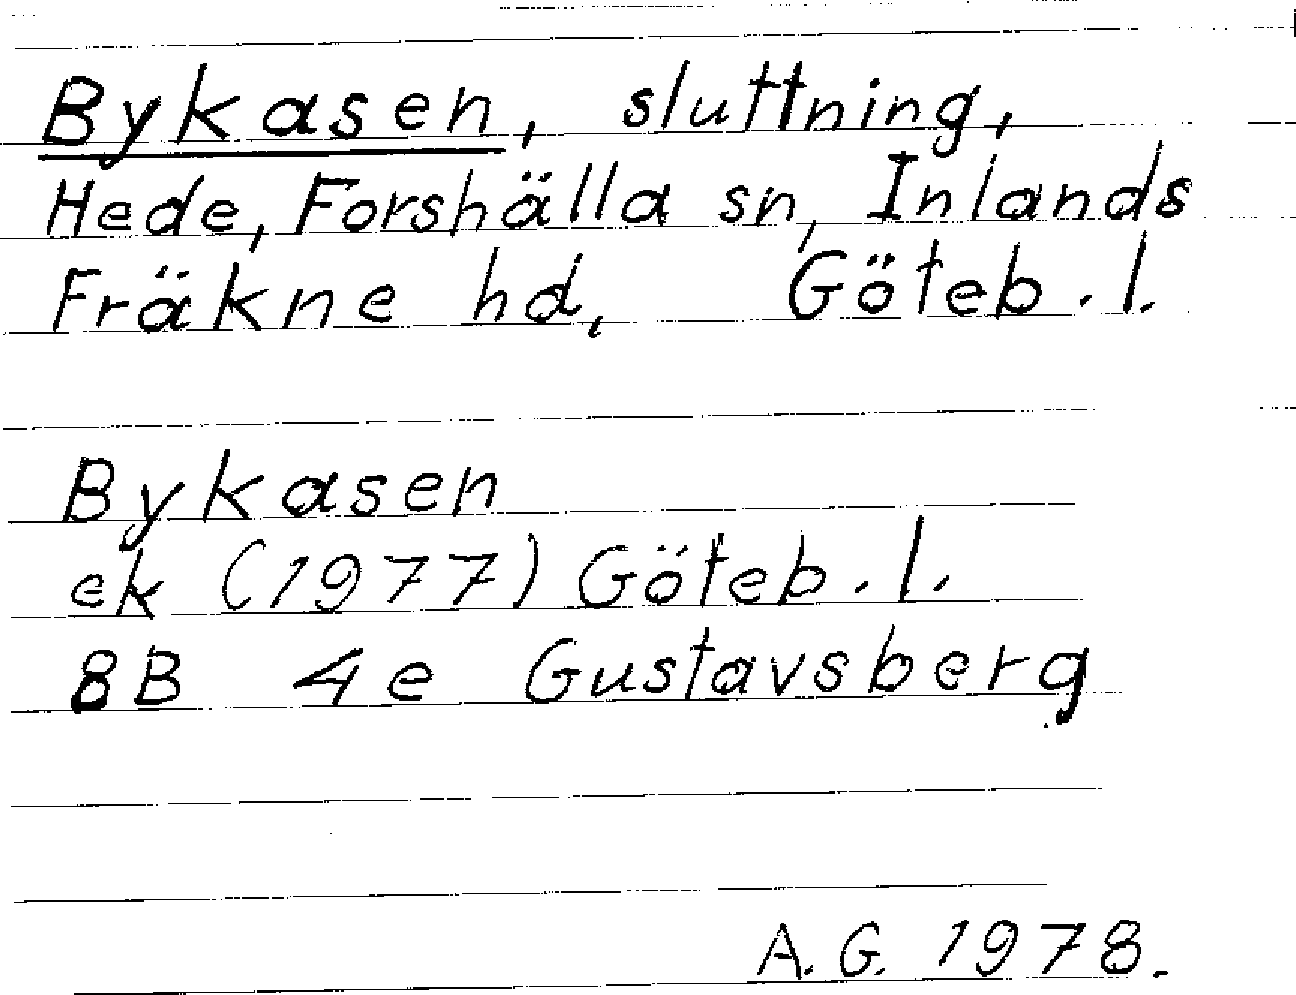 Bykasen, sluttning,
Hede, Forshälla sn, Inlands
Fräkne hd, Göteb. l.
Bykasen
ek (1977) Göteb. l.
8B 4e Gustavsberg
A. G. 1978.